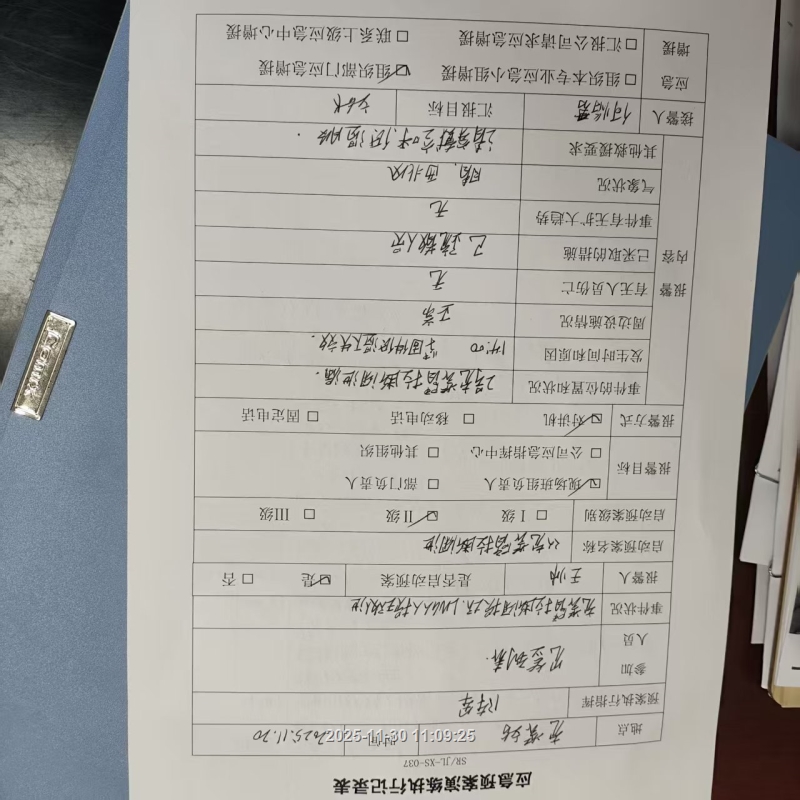 应急预案演练执行记录表
SR/JL-XS-037
地点 充装站 时间 2025.11.20
预案执行指挥
参加人员 见签到表
事件状况 充装臂拉断阀
报警人 王帅 是否启动预案 ☑是 □否
启动预案名称 充装臂拉断阀泄
启动预案级别 □Ⅰ级 ☑Ⅱ级 □Ⅲ级
报警目标 ☑现场班组负责人 □部门负责人
□公司应急指挥中心 □其他组织
报警方式 ☑对讲机 □移动电话 □固定电话
报警内容
事件的位置和状况 2号充装臂拉断阀泄漏.
发生时间和原因 14:00
周边设施情况 正常
有无人员伤亡 无
已采取的措施 已疏散人员
事件有无扩大趋势 无
气象状况 阴,西北风
其他救援要求
接警人 汇报目标
应急增援 □组织本专业应急小组增援 ☑组织部门应急增援
□汇报公司请求应急增援 □联系上级应急中心增援
2025-11-30 11:09:25